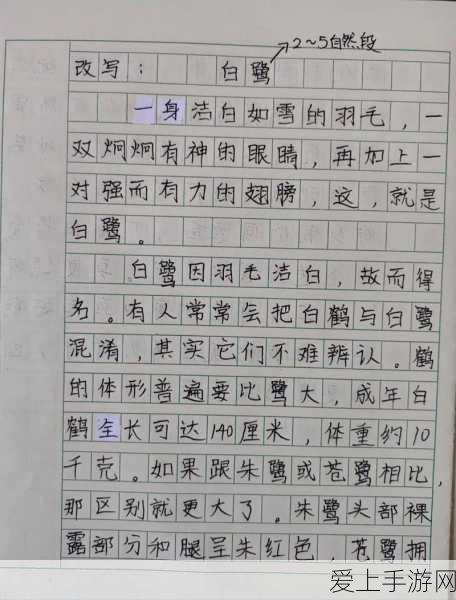 2~5自然段
改写： 白鹭
一身洁白如雪的羽毛，一
双炯炯有神的眼睛，再加上一
对强而有力的翅膀，这，就是
白鹭。
白鹭因羽毛洁白，故而得
名。有人常常会把白鹤与白鹭
混淆，其实它们不难辨认。鹤
的体形普遍要比鹭大，成年白
鹤全长可达140厘米，体重约10
千克。如果跟朱鹭或苍鹭相比，
那区别就更大了。朱鹭头部裸
露部分和腿呈朱红色，苍鹭拥
爱上手游网